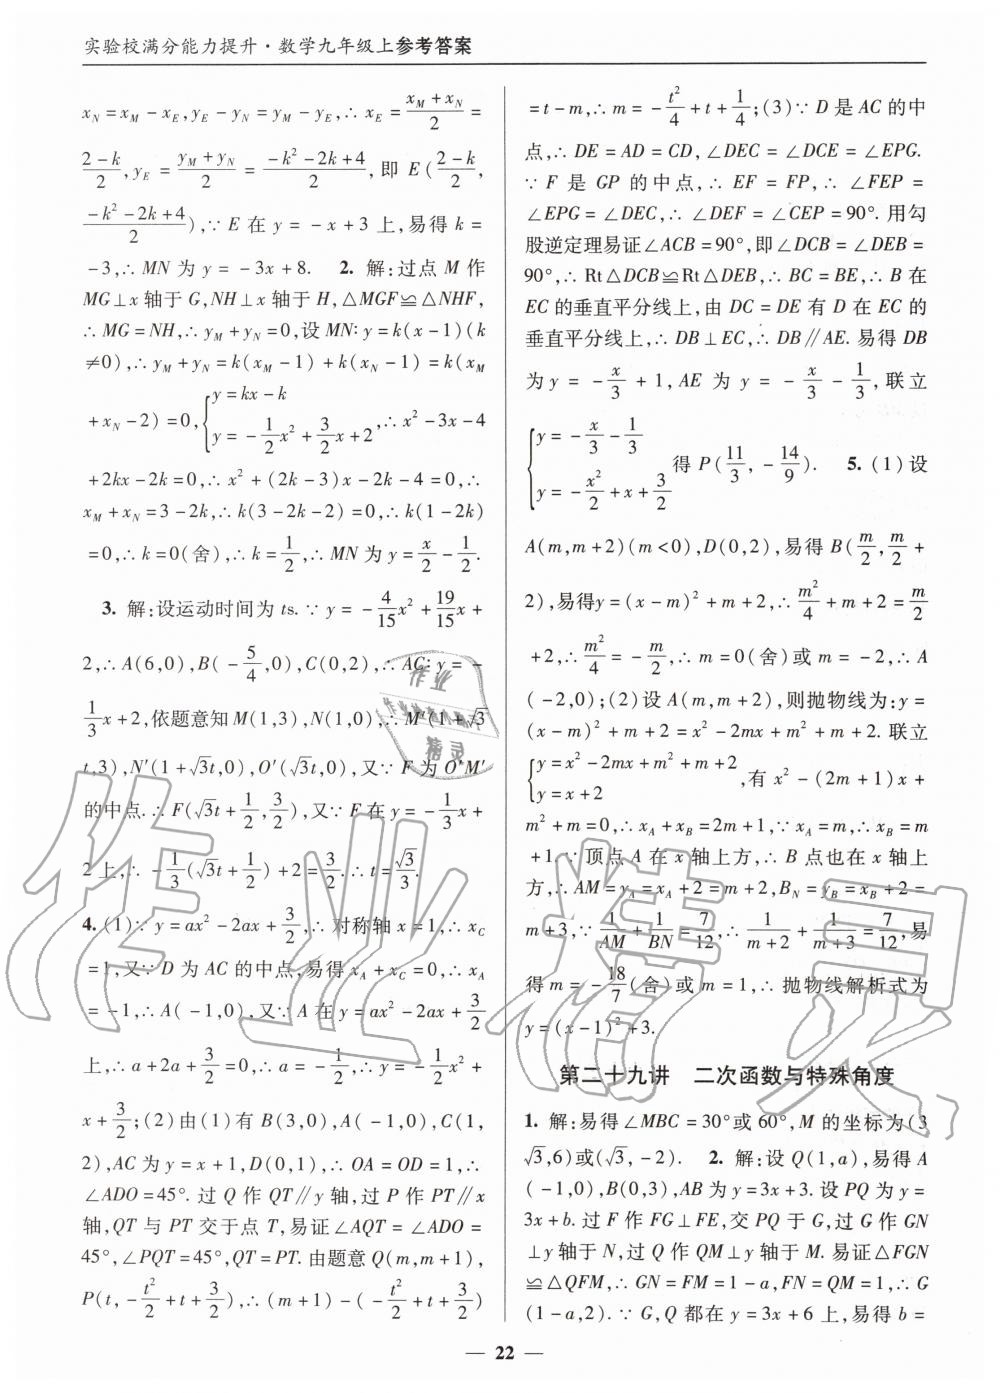 实验校满分能力提升·数学九年级上参考答案
x_N=x_M-x_E,y_E-y_N=y_M-y_E,∴x_E=\frac{x_M+x_N}{2}=
\frac{2-k}{2},y_E=\frac{y_M+y_N}{2}=\frac{-k²-2k+4}{2},即E(\frac{2-k}{2},
\frac{-k²-2k+4}{2}),∵E在y=-x+3上,易得k=
-3,∴MN为y=-3x+8. 2. 解:过点M作
MG⊥x轴于G,NH⊥x轴于H,△MGF≌△NHF,
∴MG=NH,∴y_M+y_N=0,设MN:y=k(x-1)(k
≠0),∴y_M+y_N=k(x_M-1)+k(x_N-1)=k(x_M
+x_N-2)=0,{y=kx-k y=-\frac{1}{2}x²+\frac{3}{2}x+2,∴x²-3x-4
+2kx-2k=0,∴x²+(2k-3)x-2k-4=0,∴
x_M+x_N=3-2k,∴k(3-2k-2)=0,∴k(1-2k)
=0,∴k=0(舍),∴k=\frac{1}{2},∴MN为y=\frac{x}{2}-\frac{1}{2}.
3. 解:设运动时间为ts.∵y=-\frac{4}{15}x²+\frac{19}{15}x+
2,∴A(6,0),B(-\frac{5}{4},0),C(0,2),∴AC:y=-
\frac{1}{3}x+2,依题意知M(1,3),N(1,0),∴M′(1+√3
t,3),N′(1+√3t,0),O′(√3t,0),又∵F为O′M′
的中点.∴F(√3t+\frac{1}{2},\frac{3}{2}),又∵F在y=-\frac{1}{3}x+
2上,∴-\frac{1}{3}(√3t+\frac{1}{2})+2=\frac{3}{2}.∴t=\frac{√3}{3}.
4. (1)∵y=ax²-2ax+\frac{3}{2},∴对称轴x=1,∴x_C
=1,又∵D为AC的中点,易得x_A+x_C=0,∴x_A
=-1,∴A(-1,0),又∵A在y=ax²-2ax+\frac{3}{2}
上,∴a+2a+\frac{3}{2}=0,∴a=-\frac{1}{2},∴y=-\frac{1}{2}x²+
x+\frac{3}{2};(2)由(1)有B(3,0),A(-1,0),C(1,
2),AC为y=x+1,D(0,1),∴OA=OD=1,∴
∠ADO=45°.过Q作QT∥y轴,过P作PT∥x
轴,QT与PT交于点T,易证∠AQT=∠ADO=
45°,∠PQT=45°,QT=PT.由题意Q(m,m+1),
P(t,-\frac{t²}{2}+t+\frac{3}{2}),∴(m+1)-(-\frac{t²}{2}+t+\frac{3}{2})
=t-m,∴m=-\frac{t²}{4}+t+\frac{1}{4};(3)∵D是AC的中
点,∴DE=AD=CD,∠DEC=∠DCE=∠EPG.
∵F是GP的中点,∴EF=FP,∴∠FEP=
∠EPG=∠DEC,∴∠DEF=∠CEP=90°.用勾
股逆定理易证∠ACB=90°,即∠DCB=∠DEB=
90°,∴Rt△DCB≌Rt△DEB,∴BC=BE,∴B在
EC的垂直平分线上,由DC=DE有D在EC的
垂直平分线上,∴DB⊥EC,∴DB∥AE.易得DB
为y=-\frac{x}{3}+1,AE为y=-\frac{x}{3}-\frac{1}{3},联立
{y=-\frac{x}{3}-\frac{1}{3} y=-\frac{x²}{2}+x+\frac{3}{2} 得P(\frac{11}{3},-\frac{14}{9}). 5. (1)设
A(m,m+2)(m<0),D(0,2),易得B(\frac{m}{2},\frac{m}{2}+
2),易得y=(x-m)²+m+2,∴\frac{m²}{4}+m+2=\frac{m}{2}
+2,∴\frac{m²}{4}=-\frac{m}{2},∴m=0(舍)或m=-2,∴A
(-2,0);(2)设A(m,m+2),则抛物线为:y=
(x-m)²+m+2=x²-2mx+m²+m+2.联立
{y=x²-2mx+m²+m+2 y=x+2,有x²-(2m+1)x+
m²+m=0,∴x_A+x_B=2m+1,∵x_A=m,∴x_B=m
+1.∵顶点A在x轴上方,∴B点也在x轴上
方,∴AM=y_A=x_A+2=m+2,B_N=y_B=x_B+2=
m+3,∵\frac{1}{AM}+\frac{1}{BN}=\frac{7}{12},∴\frac{1}{m+2}+\frac{1}{m+3}=\frac{7}{12},易
得m=-\frac{18}{7}(舍)或m=1,∴抛物线解析式为
y=(x-1)²+3.
第二十九讲 二次函数与特殊角度
1. 解:易得∠MBC=30°或60°,M的坐标为(3
√3,6)或(√3,-2). 2. 解:设Q(1,a),易得A
(-1,0),B(0,3),AB为y=3x+3.设PQ为y=
3x+b.过F作FG⊥FE,交PQ于G,过G作GN
⊥y轴于N,过Q作QM⊥y轴于M.易证△FGN
≌△QFM,∴GN=FM=1-a,FN=QM=1,∴G
(1-a,2).∵G,Q都在y=3x+6上,易得b=
— 22 —
作业精灵
作业
精灵